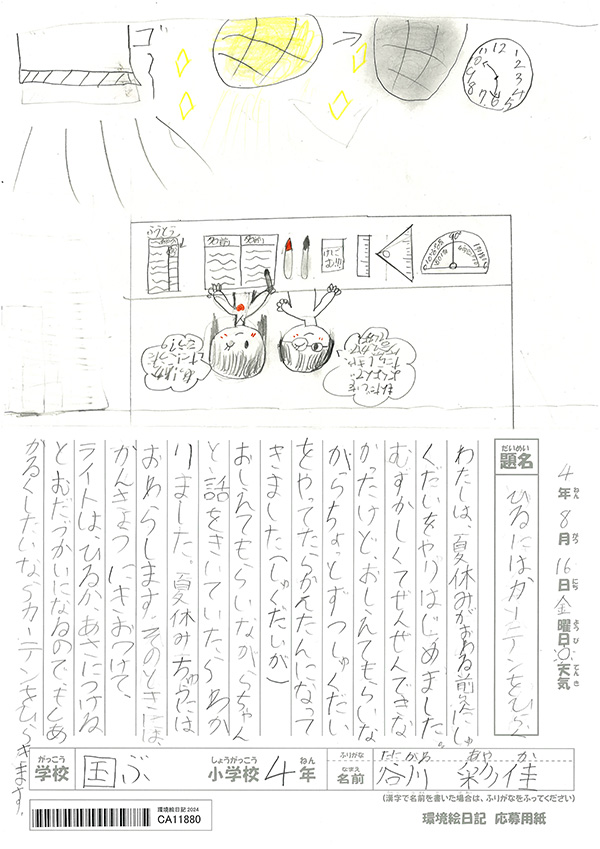 ゴー
12
1
2
3
4
5
6
7
8
9
10
11
ふうとう
名前
名前
けしごむ!!!
90°
4年8月16日金曜日 天気
ねん
がつ
にち
ようび
てんき
だいめい
題名
ひるにはカーテンをひらく
わたしは、夏休みがおわる前にしゅ
くだいをやりはじめました。
むずかしくてぜんぜんできな
かったけど、おしえてもらいな
がらちょっとずつしゅくだい
をやってたらかんたんになって
きました(しゅくだいが)
おしえてもらいながらちゃん
と話をきいていたらわか
りました。夏休み中には
おわらします。そのときには、
かんきょうにきおつけて、
ライトは、ひるか、あさにつける
とむだづかいになるので、もしあ
かるくしたいならカーテンをひらきます。
がっこう
学校
国ぶ
しょうがっこう
小学校
4
ねん
年
ふりがな
なまえ
名前
はせがわ あやか
谷川 彩佳
(漢字で名前を書いた場合は、ふりがなをふってください)
環境絵日記 2024
CA11880
環境絵日記 応募用紙